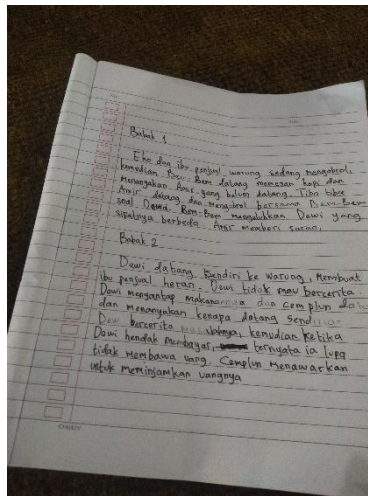 No.
Babak 1
Eko dan ibu penjual warung sedang mengobrol,
kemudian Bem-Bem datang memesan kopi dan
menanyakan Amir yang belum datang. Tiba tiba
Amir datang dan mengobrol bersama Bem-Bem
soal Dewi. Bem-Bem mengeluhkan Dewi yang
sifatnya berbeda. Amir memberi saran.
Babak 2
Dewi datang sendiri ke warung, Membuat
ibu penjual heran. Dewi tidak mau bercerita.
Dewi menyantap makanannya dan cemplun
dan menanyakan kenapa datang sendirian
Dewi bercerita kemudian ketika
Dewi hendak membayar, ternyata ia lupa
tidak membawa uang. Cemplun menawarkan
untuk meminjamkan uangnya